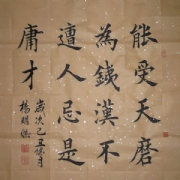 能受天磨
為鐵漢不
遭人忌是
庸才
歲次己丑
楊明